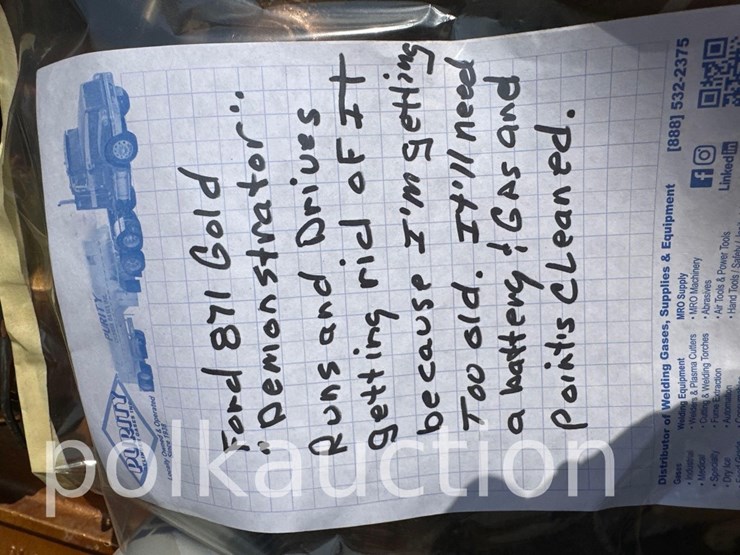 PURITY
Locally Owned & Operated
Since 1938
PURITY
Ford 871 Gold
"Demonstrator".
Runs and Drives
getting rid of It
because I'm getting
Too old. It'll need
a battery & GAs and
points CLeaned.
Distributor of Welding Gases, Supplies & Equipment
[888] 532-2375
Gases
• Industrial
• Medical
• Specialty
• Dry Ice
Welding Equipment
• Welders & Plasma Cutters
• Cutting & Welding Torches
• Fume Extraction
• Automation
MRO Supply
• MRO Machinery
• Abrasives
• Air Tools & Power Tools
• Hand Tools / Safety
LinkedIn
polkauction